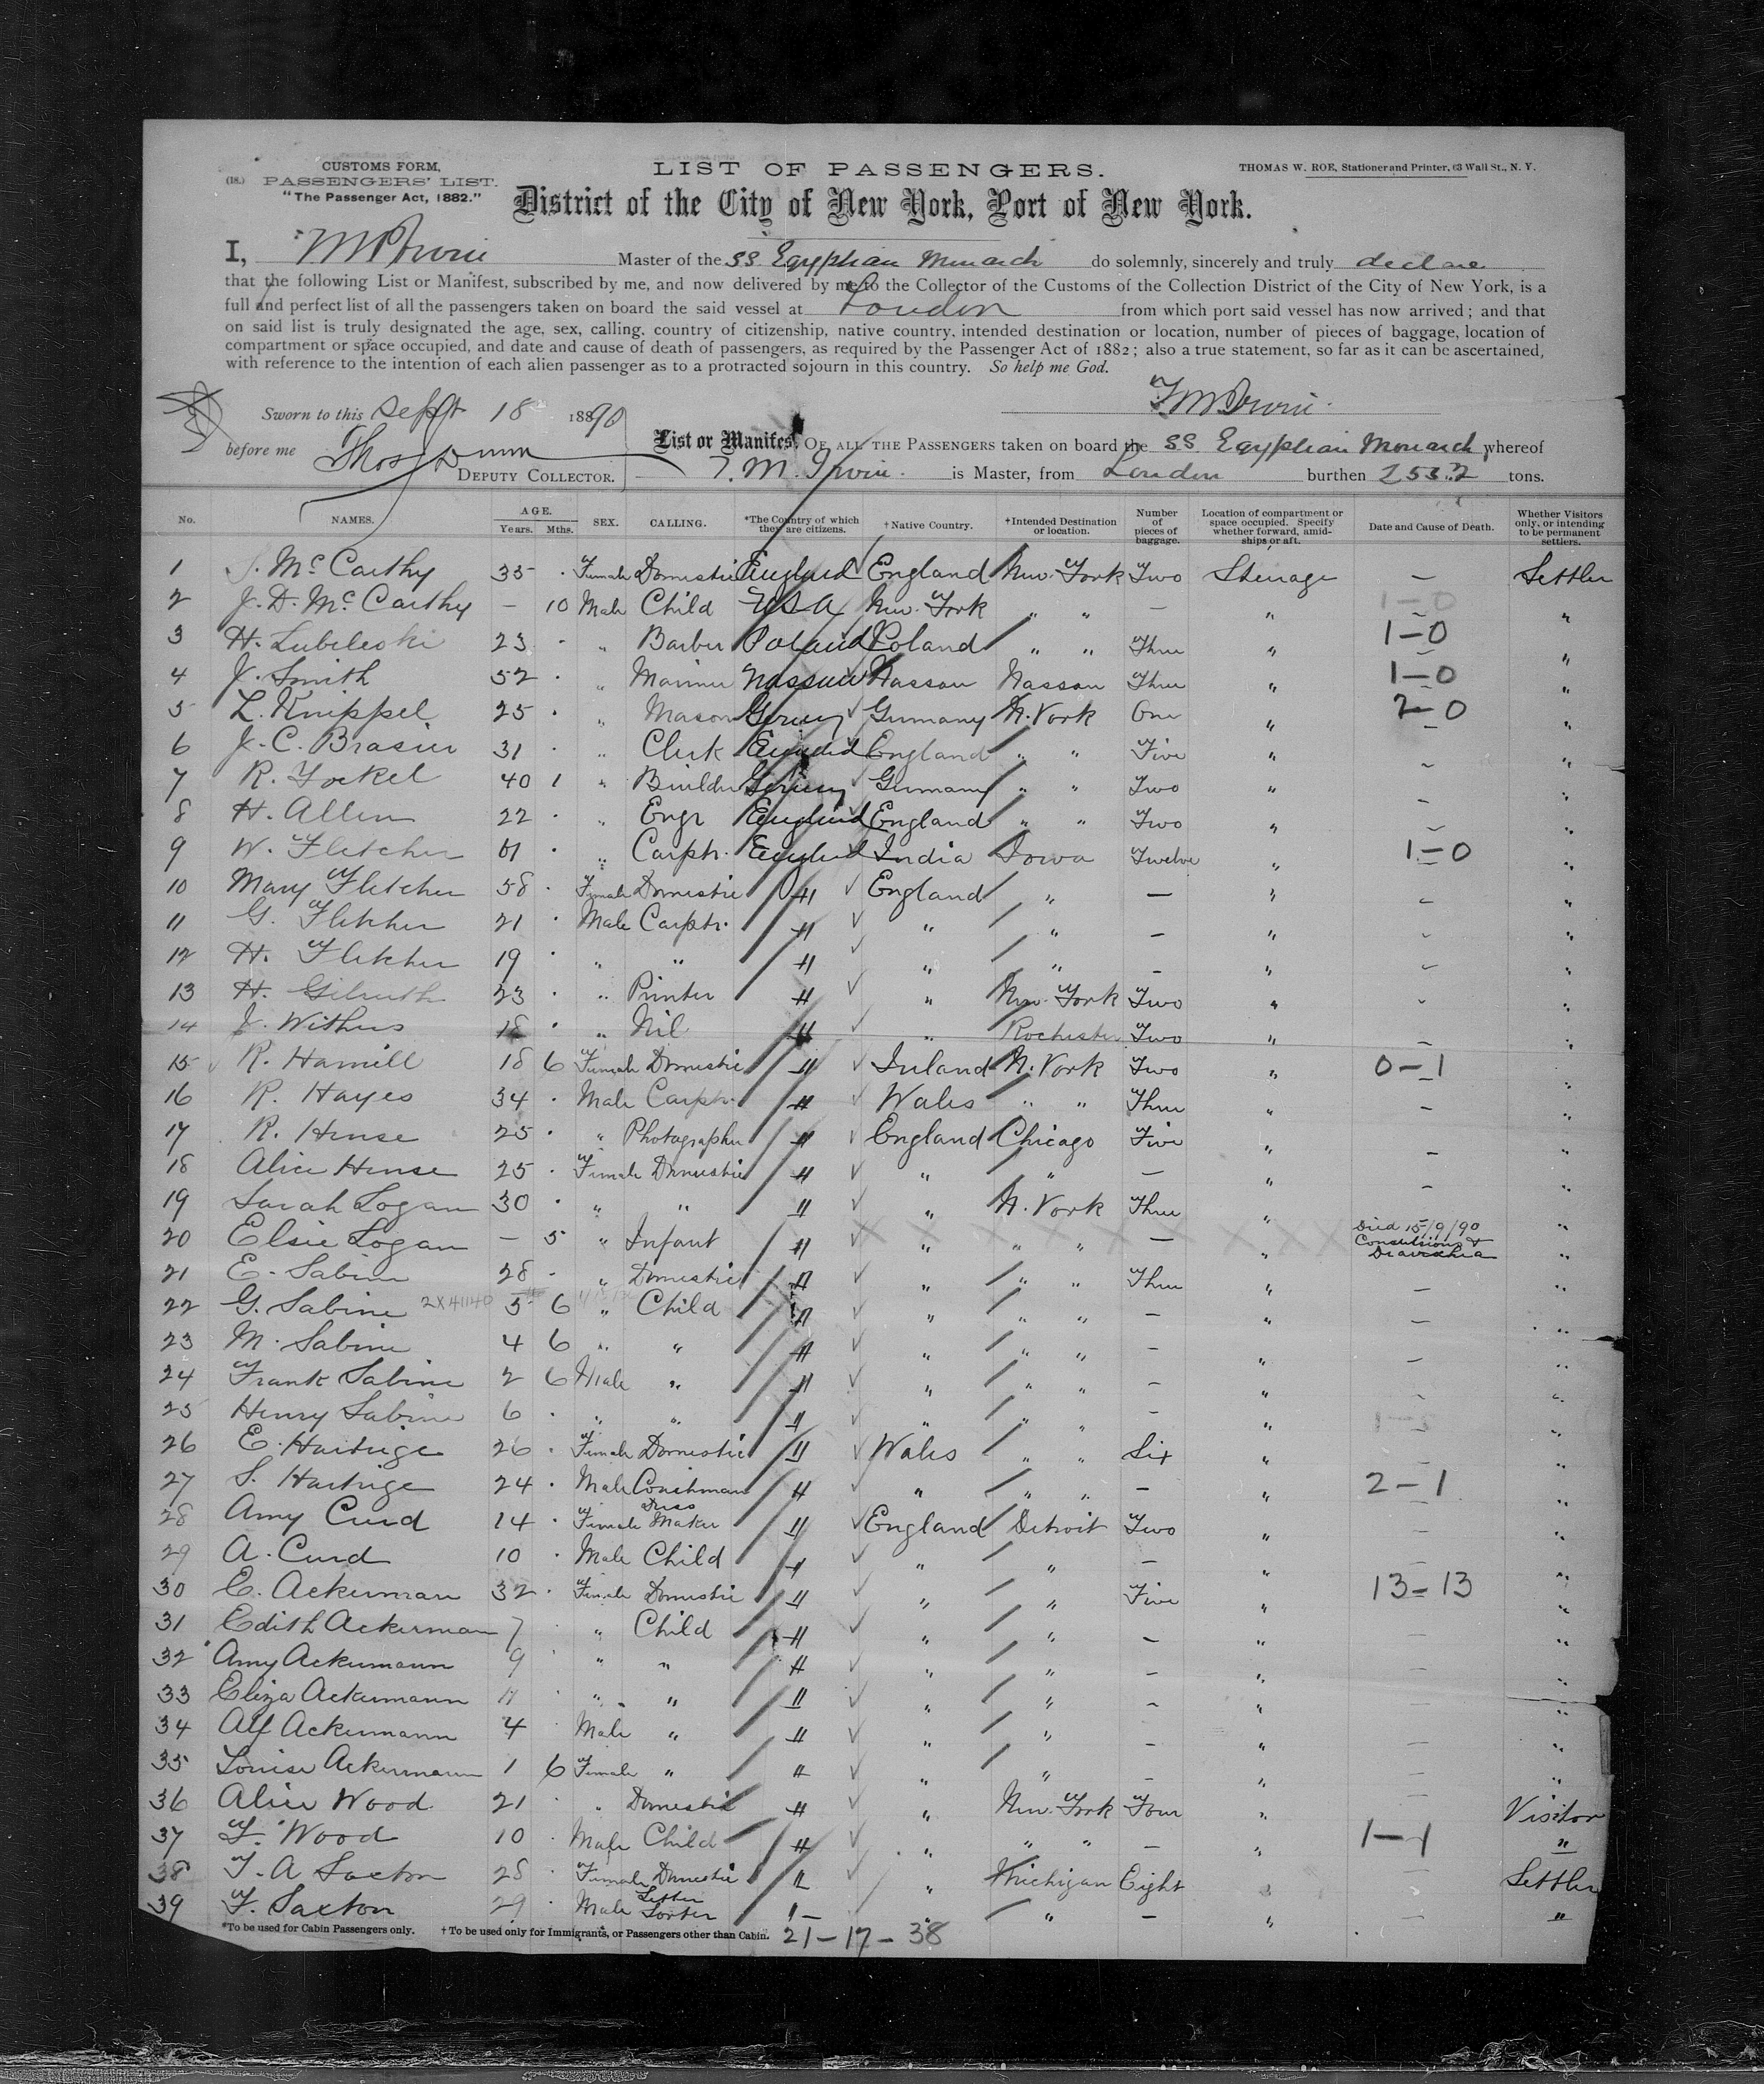 CUSTOMS FORM,
(18.) PASSENGERS' LIST.
"The Passenger Act, 1882."
LIST OF PASSENGERS.
THOMAS W. ROE, Stationer and Printer, 63 Wall St., N. Y.
District of the City of New York, Port of New York.
I, Irwin Master of the SS. Egyptian Monarch do solemnly, sincerely and truly declare
that the following List or Manifest, subscribed by me, and now delivered by me to the Collector of the Customs of the Collection District of the City of New York, is a
full and perfect list of all the passengers taken on board the said vessel at London from which port said vessel has now arrived; and that
on said list is truly designated the age, sex, calling, country of citizenship, native country, intended destination or location, number of pieces of baggage, location of
compartment or space occupied, and date and cause of death of passengers, as required by the Passenger Act of 1882; also a true statement, so far as it can be ascertained,
with reference to the intention of each alien passenger as to a protracted sojourn in this country. So help me God.
T M Irwin
Sworn to this Sept 18 1890
before me Thos Dunn
DEPUTY COLLECTOR.
List or Manifest, OF ALL THE PASSENGERS taken on board the SS Egyptian Monarch whereof
T. M. Irwin. is Master, from London burthen 2532 tons.
No. NAMES. AGE. Years. Mths. SEX. CALLING. *The Country of which they are citizens. †Native Country. †Intended Destination or location. Number of pieces of baggage. Location of compartment or space occupied. Specify whether forward, amidships or aft. Date and Cause of Death. Whether Visitors only, or intending to be permanent settlers.
1 McCarthy 35 Female Domestic England England New York Two Steerage — Settler
2 J. D. McCarthy — 10 Male Child USA New York " " — " 1–0 "
3 H. Lubileski 23 " Barber Poland Poland " " Three " 1–0 "
4 J. Smith 52 " Mariner Nassau Nassau Nassau Three " 1–0 "
5 L. Knippel 25 " Mason Germy Germany N. York One " 2–0 "
6 J. C. Brasier 31 " Clerk England England " " Five " – "
7 R. Yockel 40 1 " Builder Germy Germany " " Two " – "
8 H. Allen 22 " Engr England England " " Two " – "
9 W. Fletcher 61 " Carptr. England India Iowa Twelve " 1–0 "
10 Mary Fletcher 58 Female Domestic " England " — " – "
11 G. Fletcher 21 Male Carptr. " " " – " – "
12 H. Fletcher 19 " " " " " – " – "
13 H. Gilruth 23 " Printer " " New York Two " – "
14 J. Withers 18 " Nil " " Rochester Two " – "
15 R. Hamill 18 6 Female Domestic " Ireland N. York Two " 0–1 "
16 R. Hayes 34 Male Carptr. " Wales " " Three " – "
17 R. Hense 25 " Photographer " England Chicago Five " – "
18 Alice Hense 25 Female Domestic " " " — " – "
19 Sarah Logan 30 " " " " N. York Three " – "
20 Elsie Logan — 5 " Infant " " " " — " Died 15/9/90 Convulsions & Diarrhia "
21 E. Sabine 28 " Domestic " " " " Three " — "
22 G. Sabine 2X41140 5 6 " Child " " " " – " — "
23 M. Sabine 4 6 " " " " " " – " — "
24 Frank Sabine 2 6 Male " " " " " – " – "
25 Henry Sabine 6 " " " " " " – " "
26 E. Hartrige 26 Female Domestic " Wales " " Six " "
27 S. Hartrige 24 Male Coachman " " " " – " 2–1 "
28 Amy Curd 14 Female Dress Maker " England Detroit Two " — "
29 A. Curd 10 Male Child " " " – " — "
30 E. Ackerman 32 Female Domestic " " " Five " 13–13 "
31 Edith Ackerman 7 " Child " " " – " — "
32 Amy Ackermann 9 " " " " " – " — "
33 Eliza Ackermann 11 " " " " " – " — "
34 Alf Ackermann 4 Male " " " " – " — "
35 Louise Ackermann 1 6 Female " " " " – " "
36 Alice Wood 21 " Domestic " " New York Four " — Visitor
37 F. Wood 10 Male Child " " " " – " 1–1 "
38 T. A Saxton 28 Female Domestic " " Michigan Eight " — Settler
39 F. Saxton 29 Male Letter Sorter " " " – " — "
*To be used for Cabin Passengers only. †To be used only for Immigrants, or Passengers other than Cabin. 21–17–38